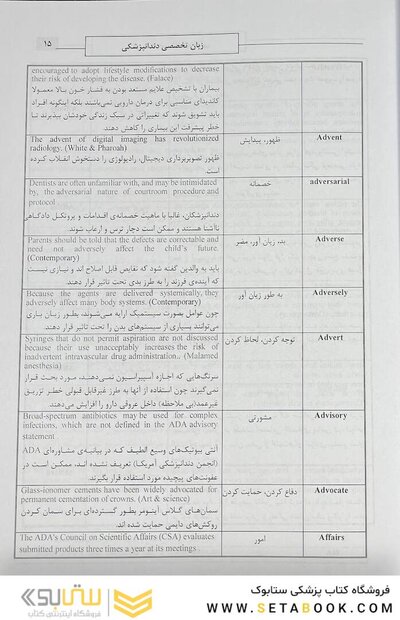 زبان تخصصی دندانپزشکی
۱۵
encouraged to adopt lifestyle modifications to decrease
their risk of developing the disease. (Falace)
بیماران با تشخیص علایم مستعد بودن به فشار خون بالا معمولا
کاندیدای مناسبی برای درمان دارویی نمی‌باشند بلکه اینگونه افراد
باید تشویق شوند که تغییراتی در سبک زندگی خودشان بپذیرند تا
خطر پیشرفت این بیماری را کاهش دهند
The advent of digital imaging has revolutionized
radiology. (White & Pharoah)
ظهور تصویربرداری دیجیتال، رادیولوژی را دستخوش انقلاب کرده
است
ظهور، پیدایش
Advent
Dentists are often unfamiliar with, and may be intimidated
by, the adversarial nature of courtroom procedure and
protocol
دندانپزشکان، غالبا با ماهیت خصمانه‌ی اقدامات و پروتکل دادگاهی
ناآشنا هستند و ممکن است دچار ترس و ارعاب شوند
خصمانه
adversarial
Parents should be told that the defects are correctable and
need not adversely affect the child's future.
(Contemporary)
باید به والدین گفته شود که نقایص قابل اصلاح اند و نیازی نیست
که آینده‌ی فرزند را به طرز بدی تحت تاثیر قرار دهند
بد، زیان آور، مضر
Adverse
Because the agents are delivered systemically, they
adversely affect many body systems. (Contemporary)
چون عوامل بصورت سیستمیک ارایه می‌شوند، بطور زیان باری
می‌توانند بسیاری از سیستم‌های بدن را تحت تاثیر قرار دهند
به طور زیان آور
Adversely
Syringes that do not permit aspiration are not discussed
because their use unacceptably increases the risk of
inadvertent intravascular drug administration.. (Malamed
anesthesia)
سرنگ‌هایی که اجازه آسپیراسیون نمی‌دهند، مورد بحث قرار
نمی‌گیرند چون استفاده از آنها به طرز غیرقابل قبولی خطر تزریق
غیرعمد(بی ملاحظه) داخل عروقی دارو را افزایش می‌دهند
توجه کردن، لحاظ کردن
Advert
Broad-spectrum antibiotics may be used for complex
infections, which are not defined in the ADA advisory
statement
آنتی بیوتیک‌های وسیع الطیف که در بیانیه‌ی مشاوره‌ای ADA
(انجمن دندانپزشکی آمریکا) تعریف نشده اند، ممکن است در
عفونت‌های پیچیده مورد استفاده قرار بگیرند
مشورتی
Advisory
Glass-ionomer cements have been widely advocated for
permanent cementation of crowns. (Art & science)
سمان‌های گلاس آینومر بطور گسترده‌ای برای سمان کردن
روکش‌های دایمی حمایت شده اند.
دفاع کردن، حمایت کردن
Advocate
The ADA's Council on Scientific Affairs (CSA) evaluates
submitted products three times a year at its meetings
امور
Affairs
فروشگاه کتاب پزشکی ستابوک
WWW.SETABOOK.COM
ستابوک
فروشگاه اینترنتی کتاب